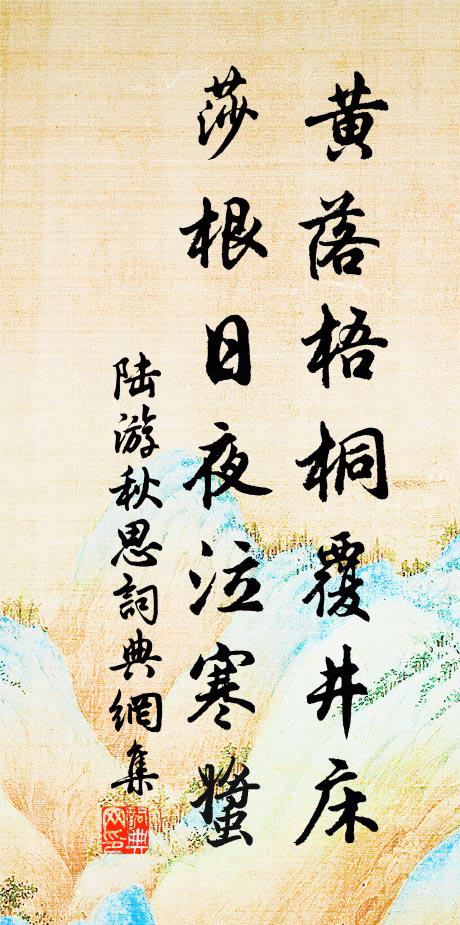 黄落梧桐覆井床
莎根日夜泣寒螿
陆游秋思詞典網集
詞典網印